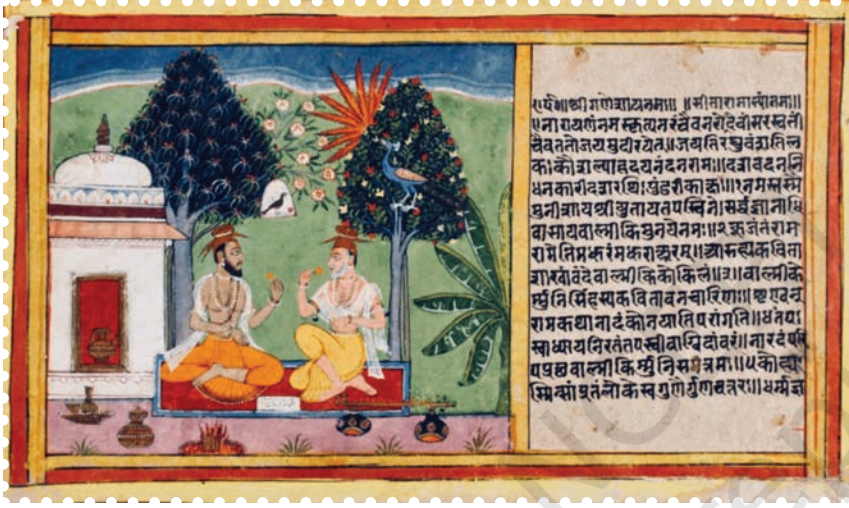 श्रीगणेशायनमः॥ ॥सीतारामाभ्यांनमः॥
नारायणंनमस्कृत्यनरंचैवनरोदेवींसरस्वतीं
चैवततोजयमुदीरयेत्॥जयतिरघुवंशतिल
कःकौशल्याहृदयनंदनरामः॥दशवदननि
धनकारीदाशरथिःपुंडरीकाक्षः॥१नमस्तस्मै
मुनीशायश्रीयुतायतपस्विने।सर्वज्ञानाधि
वासायवाल्मीकिमुनयेनमः॥२कूजंतंराम
रामेतिमधुरंमधुराक्षरम्॥आरुह्यकविता
शाखांवंदेवाल्मीकिकोकिलं॥३॥वाल्मीके
र्मुनिसिंहस्यकवितावनचारिणः॥शृण्वन्
रामकथानादंकोनयातिपरांगतिं॥४तपः
स्वाध्यायनिरतंतपस्वीवाग्विदांवरं॥नारदंपरि
पप्रच्छवाल्मीकिर्मुनिसत्तमम्॥५कोन्व
स्मिन्सांप्रतंलोकेस्वगुणैर्गुणवत्तरः॥धर्मज्ञ